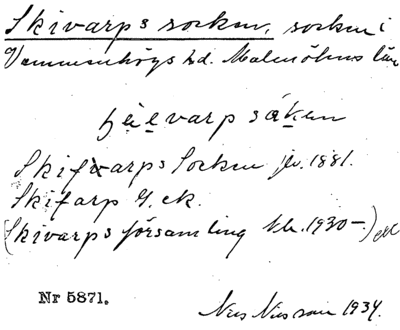 Skivarps socken, socken i
Vemmenhögs hd. Malmöhus län
varpsåken
Skifvarps Socken jb. 1881.
Skifarp G. ek.
(Skivarps församling kb. 1930-)
Nr 5871.
Nils Nilsson 1934.